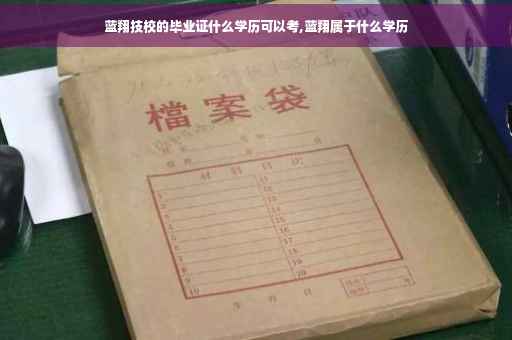 蓝翔技校的毕业证什么学历可以考,蓝翔属于什么学历
檔案袋
材料目次
1 11
2 12
3 13
4 14
5 15
6 16
7 17
8 18
9 19
10 20
年 月 日